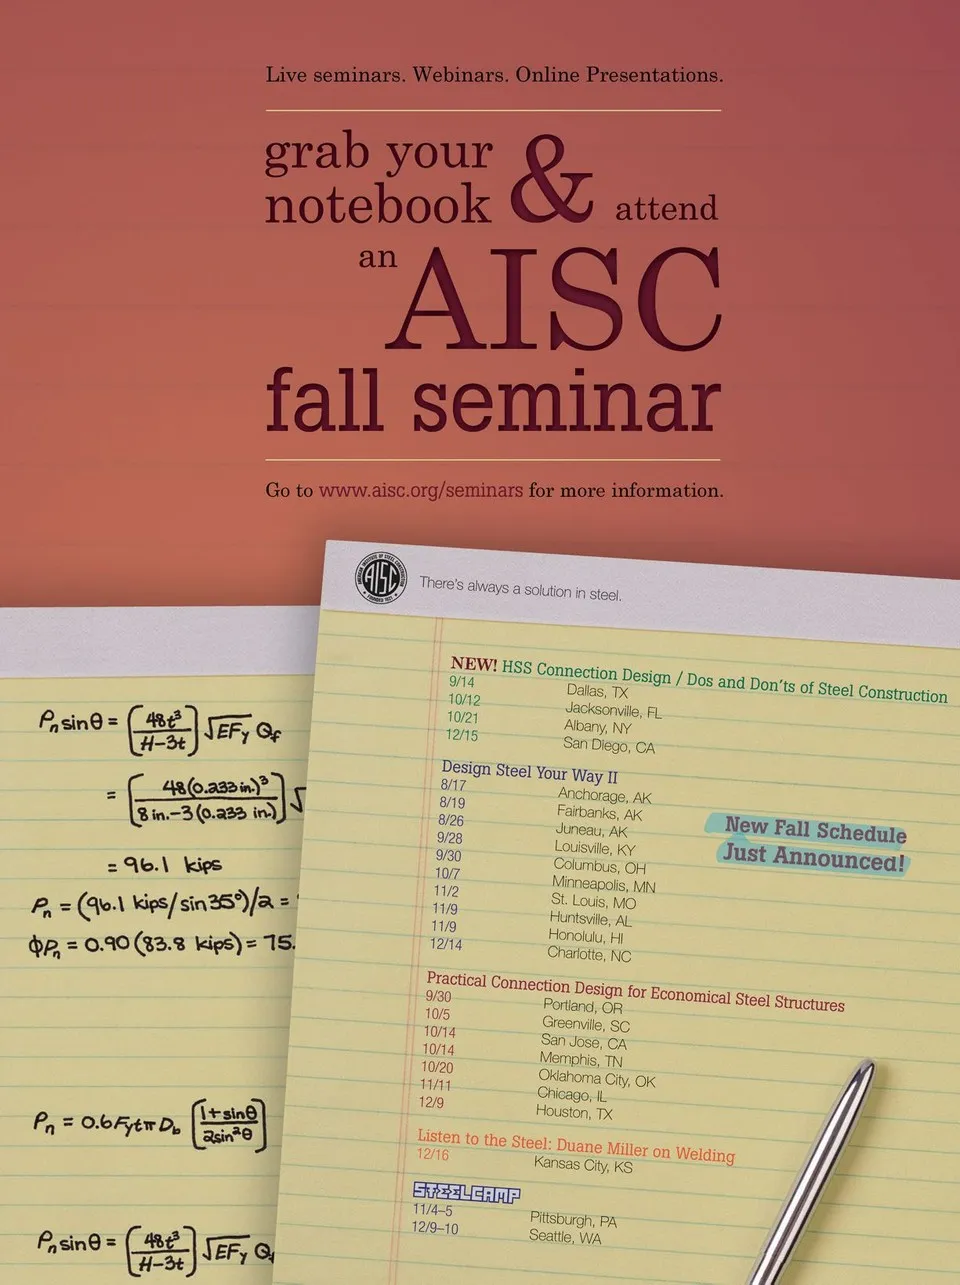 Live seminars. Webinars. Online Presentations.
grab your
notebook & attend
an AISC
fall seminar
Go to www.aisc.org/seminars for more information.
AISC
There's always a solution in steel.
NEW! HSS Connection Design / Dos and Don'ts of Steel Construction
9/14 Dallas, TX
10/12 Jacksonville, FL
10/21 Albany, NY
12/15 San Diego, CA
Design Steel Your Way II
8/17 Anchorage, AK
8/19 Fairbanks, AK
8/26 Juneau, AK
9/28 Louisville, KY
9/30 Columbus, OH
10/7 Minneapolis, MN
11/2 St. Louis, MO
11/9 Huntsville, AL
11/9 Honolulu, HI
12/14 Charlotte, NC
New Fall Schedule
Just Announced!
Practical Connection Design for Economical Steel Structures
9/30 Portland, OR
10/5 Greenville, SC
10/14 San Jose, CA
10/14 Memphis, TN
10/20 Oklahoma City, OK
11/11 Chicago, IL
12/9 Houston, TX
Listen to the Steel: Duane Miller on Welding
12/16 Kansas City, KS
STEELCAMP
11/4–5 Pittsburgh, PA
12/9–10 Seattle, WA
Pn sinθ = [48t³ / H-3t] √EFy Qf
= [48(0.233 in.)³ / 8 in.-3(0.233 in.)] √
= 96.1 kips
Pn = (96.1 kips/sin35°)/2 =
ΦPn = 0.90(83.8 kips) = 75.
Pn = 0.6FytπDb [1+sinθ / 2sin²θ]
Pn sinθ = [48t³ / H-3t] √EFy Qf